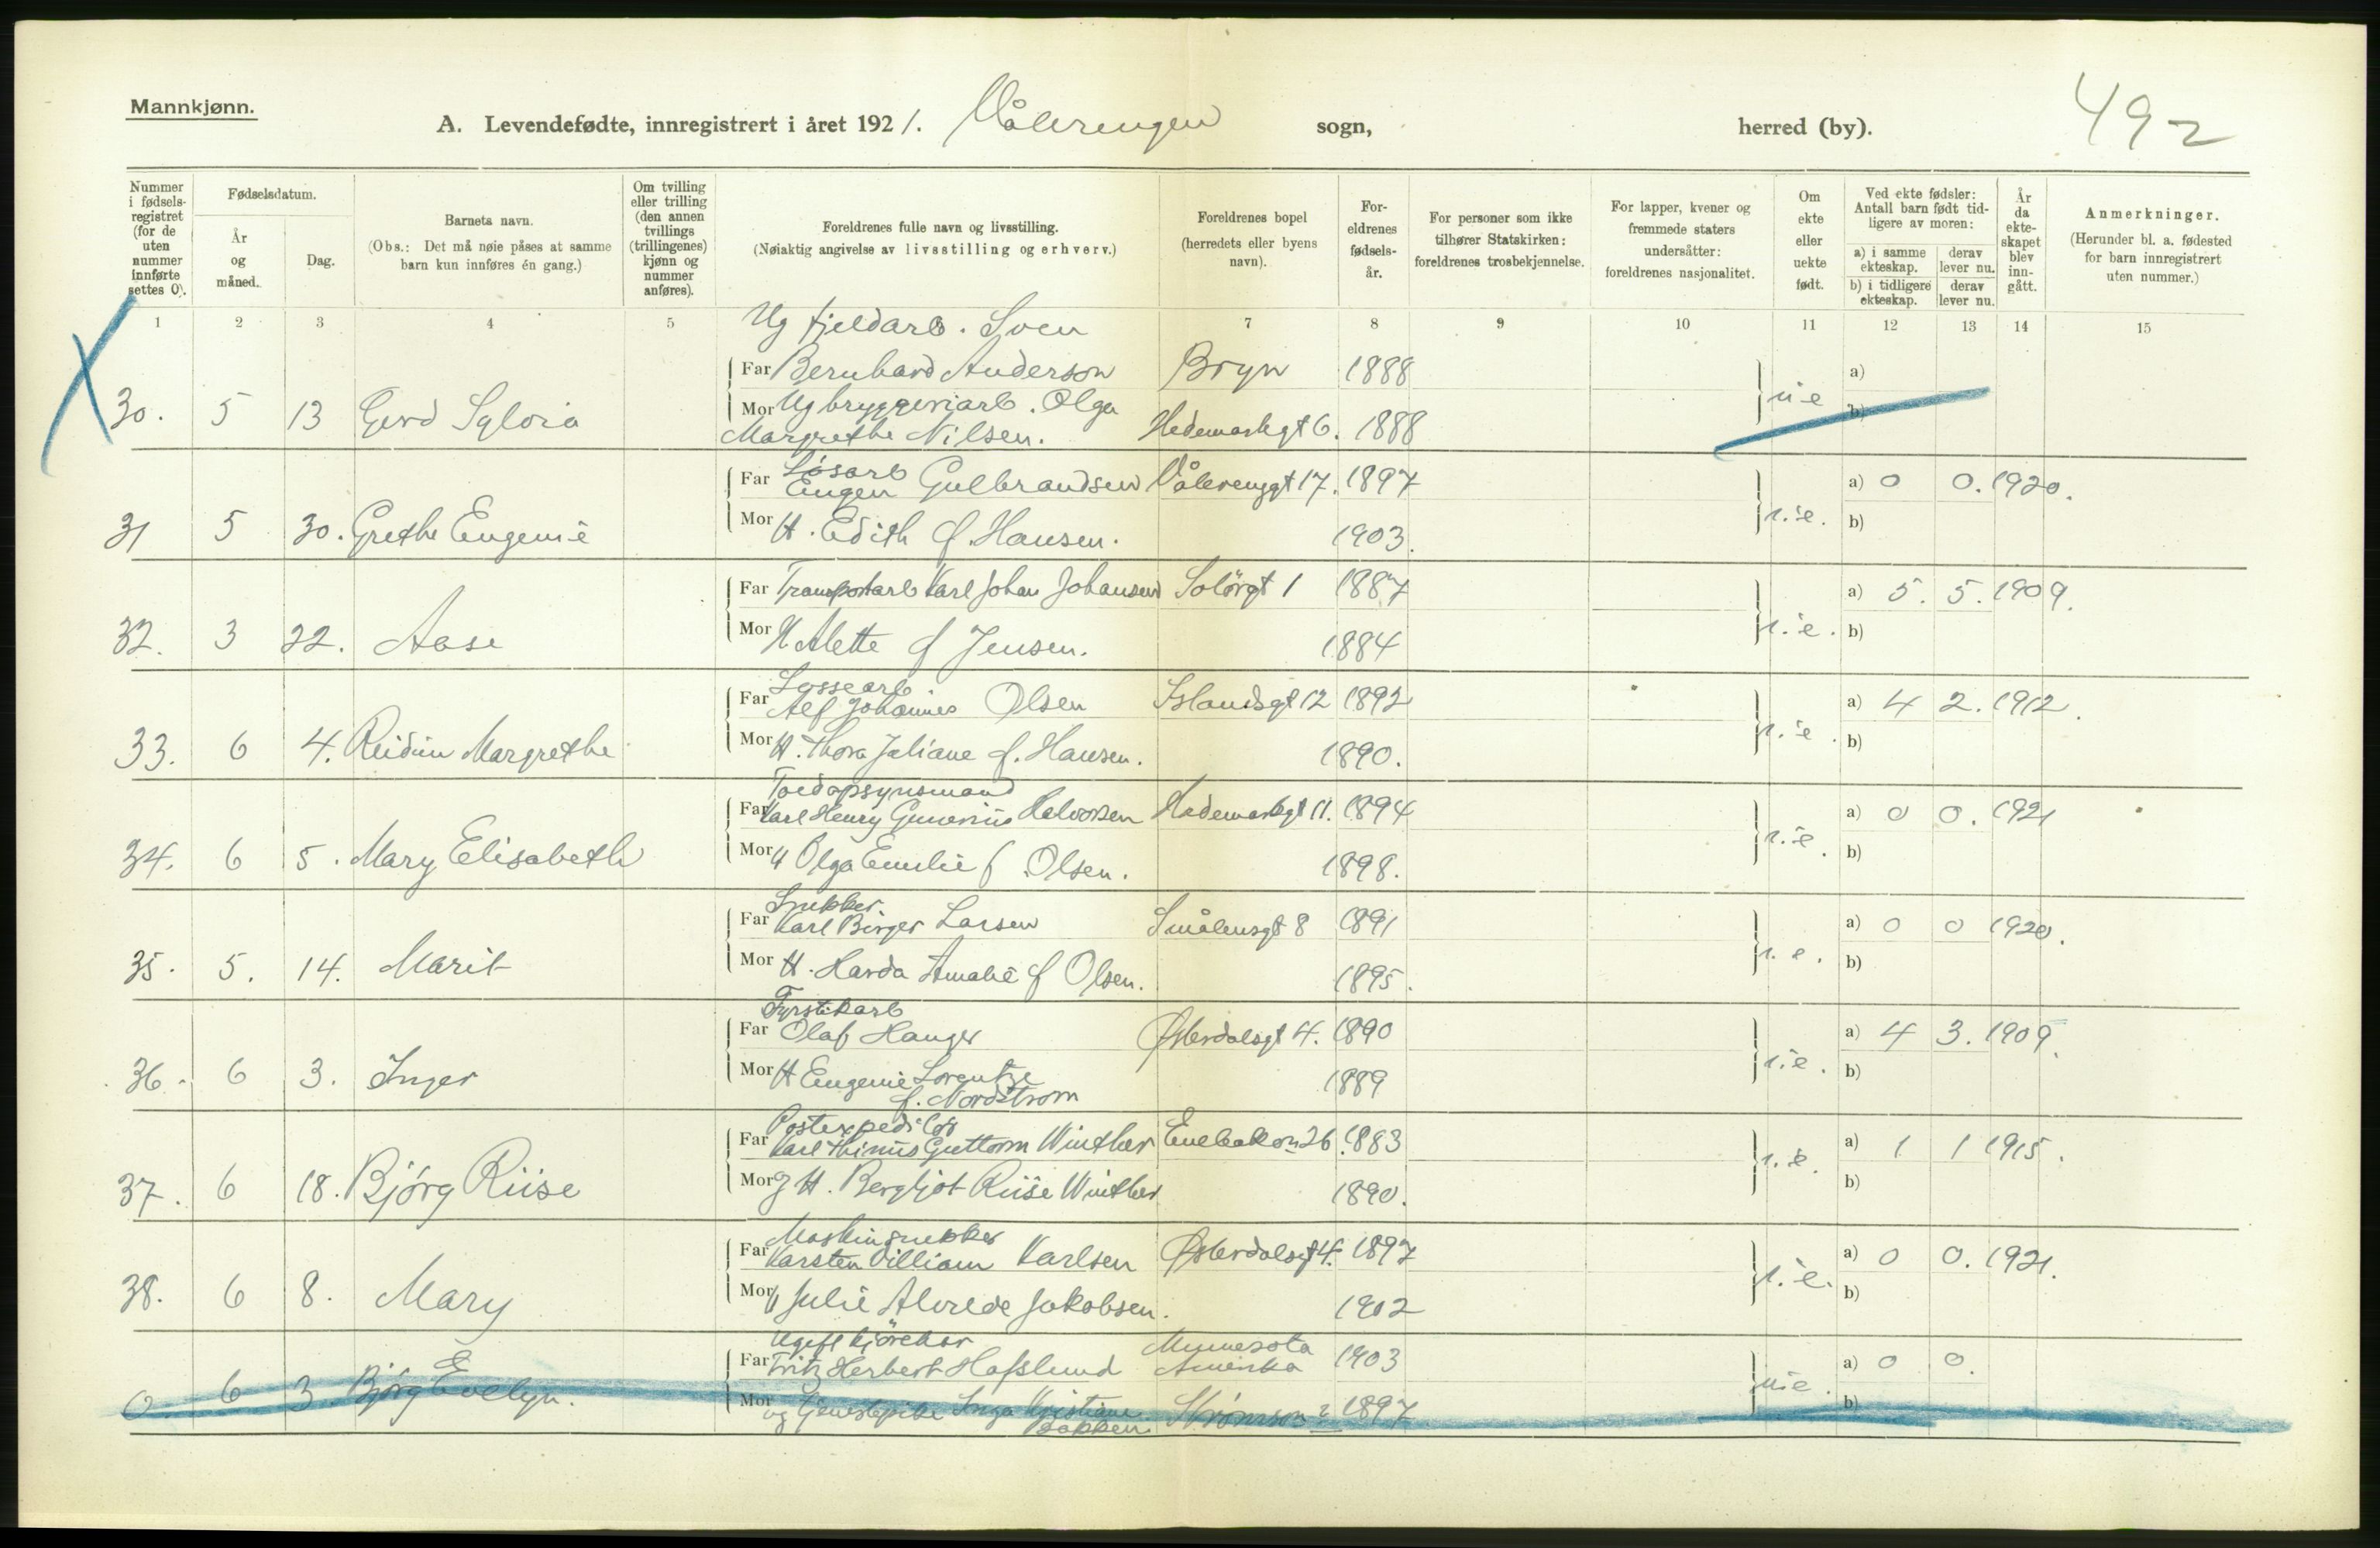 Mannkjønn.
A. Levendefødte, innregistrert i året 1921. Vålerengen sogn, herred (by).
492
Nummer i fødsels-registret (for de uten nummer innførte settes 0).
Fødselsdatum.
År og måned.
Dag.
Barnets navn.
(Obs.: Det må nøie påses at samme barn kun innføres én gang.)
Om tvilling eller trilling (den annen tvillings (trillingenes) kjønn og nummer anføres).
Foreldrenes fulle navn og livsstilling.
(Nøiaktig angivelse av livsstilling og erhverv.)
Foreldrenes bopel (herredets eller byens navn).
For-eldrenes fødsels-år.
For personer som ikke tilhører Statskirken: foreldrenes trosbekjennelse.
For lapper, kvener og fremmede staters undersåtter: foreldrenes nasjonalitet.
Om ekte eller uekte født.
Ved ekte fødsler: Antall barn født tid-ligere av moren:
a) i samme ekteskap. derav lever nu.
b) i tidligere ekteskap. derav lever nu.
År da ekte-skapet blev inn-gått.
Anmerkninger.
(Herunder bl. a. fødested for barn innregistrert uten nummer.)
1 2 3 4 5 7 8 9 10 11 12 13 14 15
Ug fjeldarb. Sven
Far Bernhard Anderson Bryn 1888 a)
30. 5 13 Gerd Sylvia Mor Ug bryggeriarb. Olga u e b)
Margrethe Nilsen. Hedemarkgt 6. 1888
Far Løsarb
Eugen Gulbrandsen Vålerenggt 17. 1897 a) 0 0. 1920.
31 5 30. Grethe Eugenie Mor H. Edith f. Hansen. 1903. e. b)
Far Transportarb Karl Johan Johansen Solørgt 1 1887 a) 5. 5. 1909.
32. 3 22. Aase Mor H Alette f Jensen. 1884 e. b)
Far Lossearb.
Alf Johannes Olsen Islandsgt 12 1892 a) 4 2. 1912.
33. 6 4. Reidun Margrethe Mor H. Thora Juliane f. Hansen. 1890. e. b)
Far
Karl Henry Gunerius Halvorsen Hedemarkgt 11. 1894 a) 0 0. 1921
34. 6 5. Mary Elisabeth Mor H Olga Emilie f. Olsen. 1898. e. b)
Far Snekker
Karl Birger Larsen Smålensgt 8 1891 a) 0 0 1920.
35. 5. 14. Marit Mor H. Harda Amalie f Olsen. 1895. e. b)
Fyrstikarb
Far Olaf Hauger Østerdalsgt 4. 1890 a) 4 3. 1909.
36. 6 3. Inger Mor H Eugenie Lorentze 1889 e. b)
f. Nordstrom
Far Postexpeditør
Karl Guttorm Winther Enebakvn 26 1883 a) 1 1 1915.
37. 6 18. Bjørg Riise Mor H. Bergljot Riise Winther 1890. e. b)
Far Maskinsnekker
Karsten Villiam Karlsen Østerdalsgt 4. 1897 a) 0 0. 1921.
38. 6 8. Mary Mor H Julie Alvilde Jakobsen. 1902 e. b)
Ugift kjørekar Minnesota
Far Fritz Herbert Hafslund Amerika 1903 a) 0 0.
0 6 3 Bjørg Evelyn. Mor og tjenestepike Inga Kristiane Strømsvn 2 1897 u e. b)
Bakken.